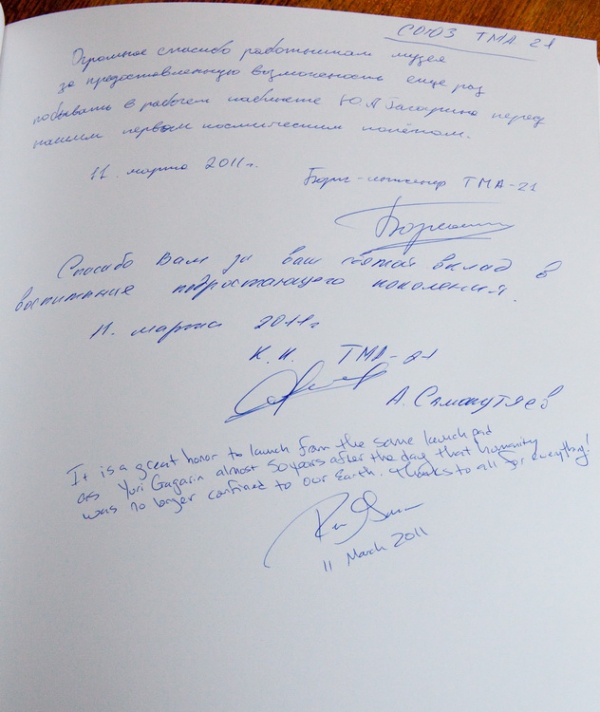 СОЮЗ ТМА 21
Огромное спасибо работникам музея
за предоставленную возможность еще раз
побывать в рабочем кабинете Ю.А Гагарина перед
нашим первым космическим полётом.
11. марта 2011г.
Борт-инженер ТМА-21
Спасибо Вам за ваш вклад в
воспитание подростающего поколения.
11. марта 2011г
К.К. ТМА-21
А. Самокутяев
It is a great honor to launch from the same launch pad
as Yuri Gagarin almost 50 years after the day that humanity
was no longer confined to our Earth. Thanks to all for everything!
11 March 2011